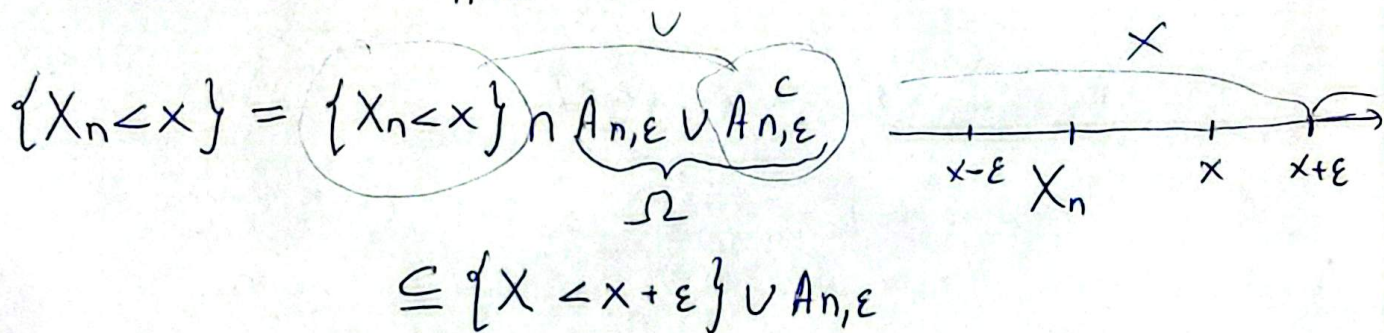 ∪
X
{Xₙ<x} = {Xₙ<x} ∩ Aₙ,ε ∪ Aₙ,εᶜ
Ω
x-ε Xₙ x x+ε
⊆ {X < x+ε} ∪ Aₙ,ε